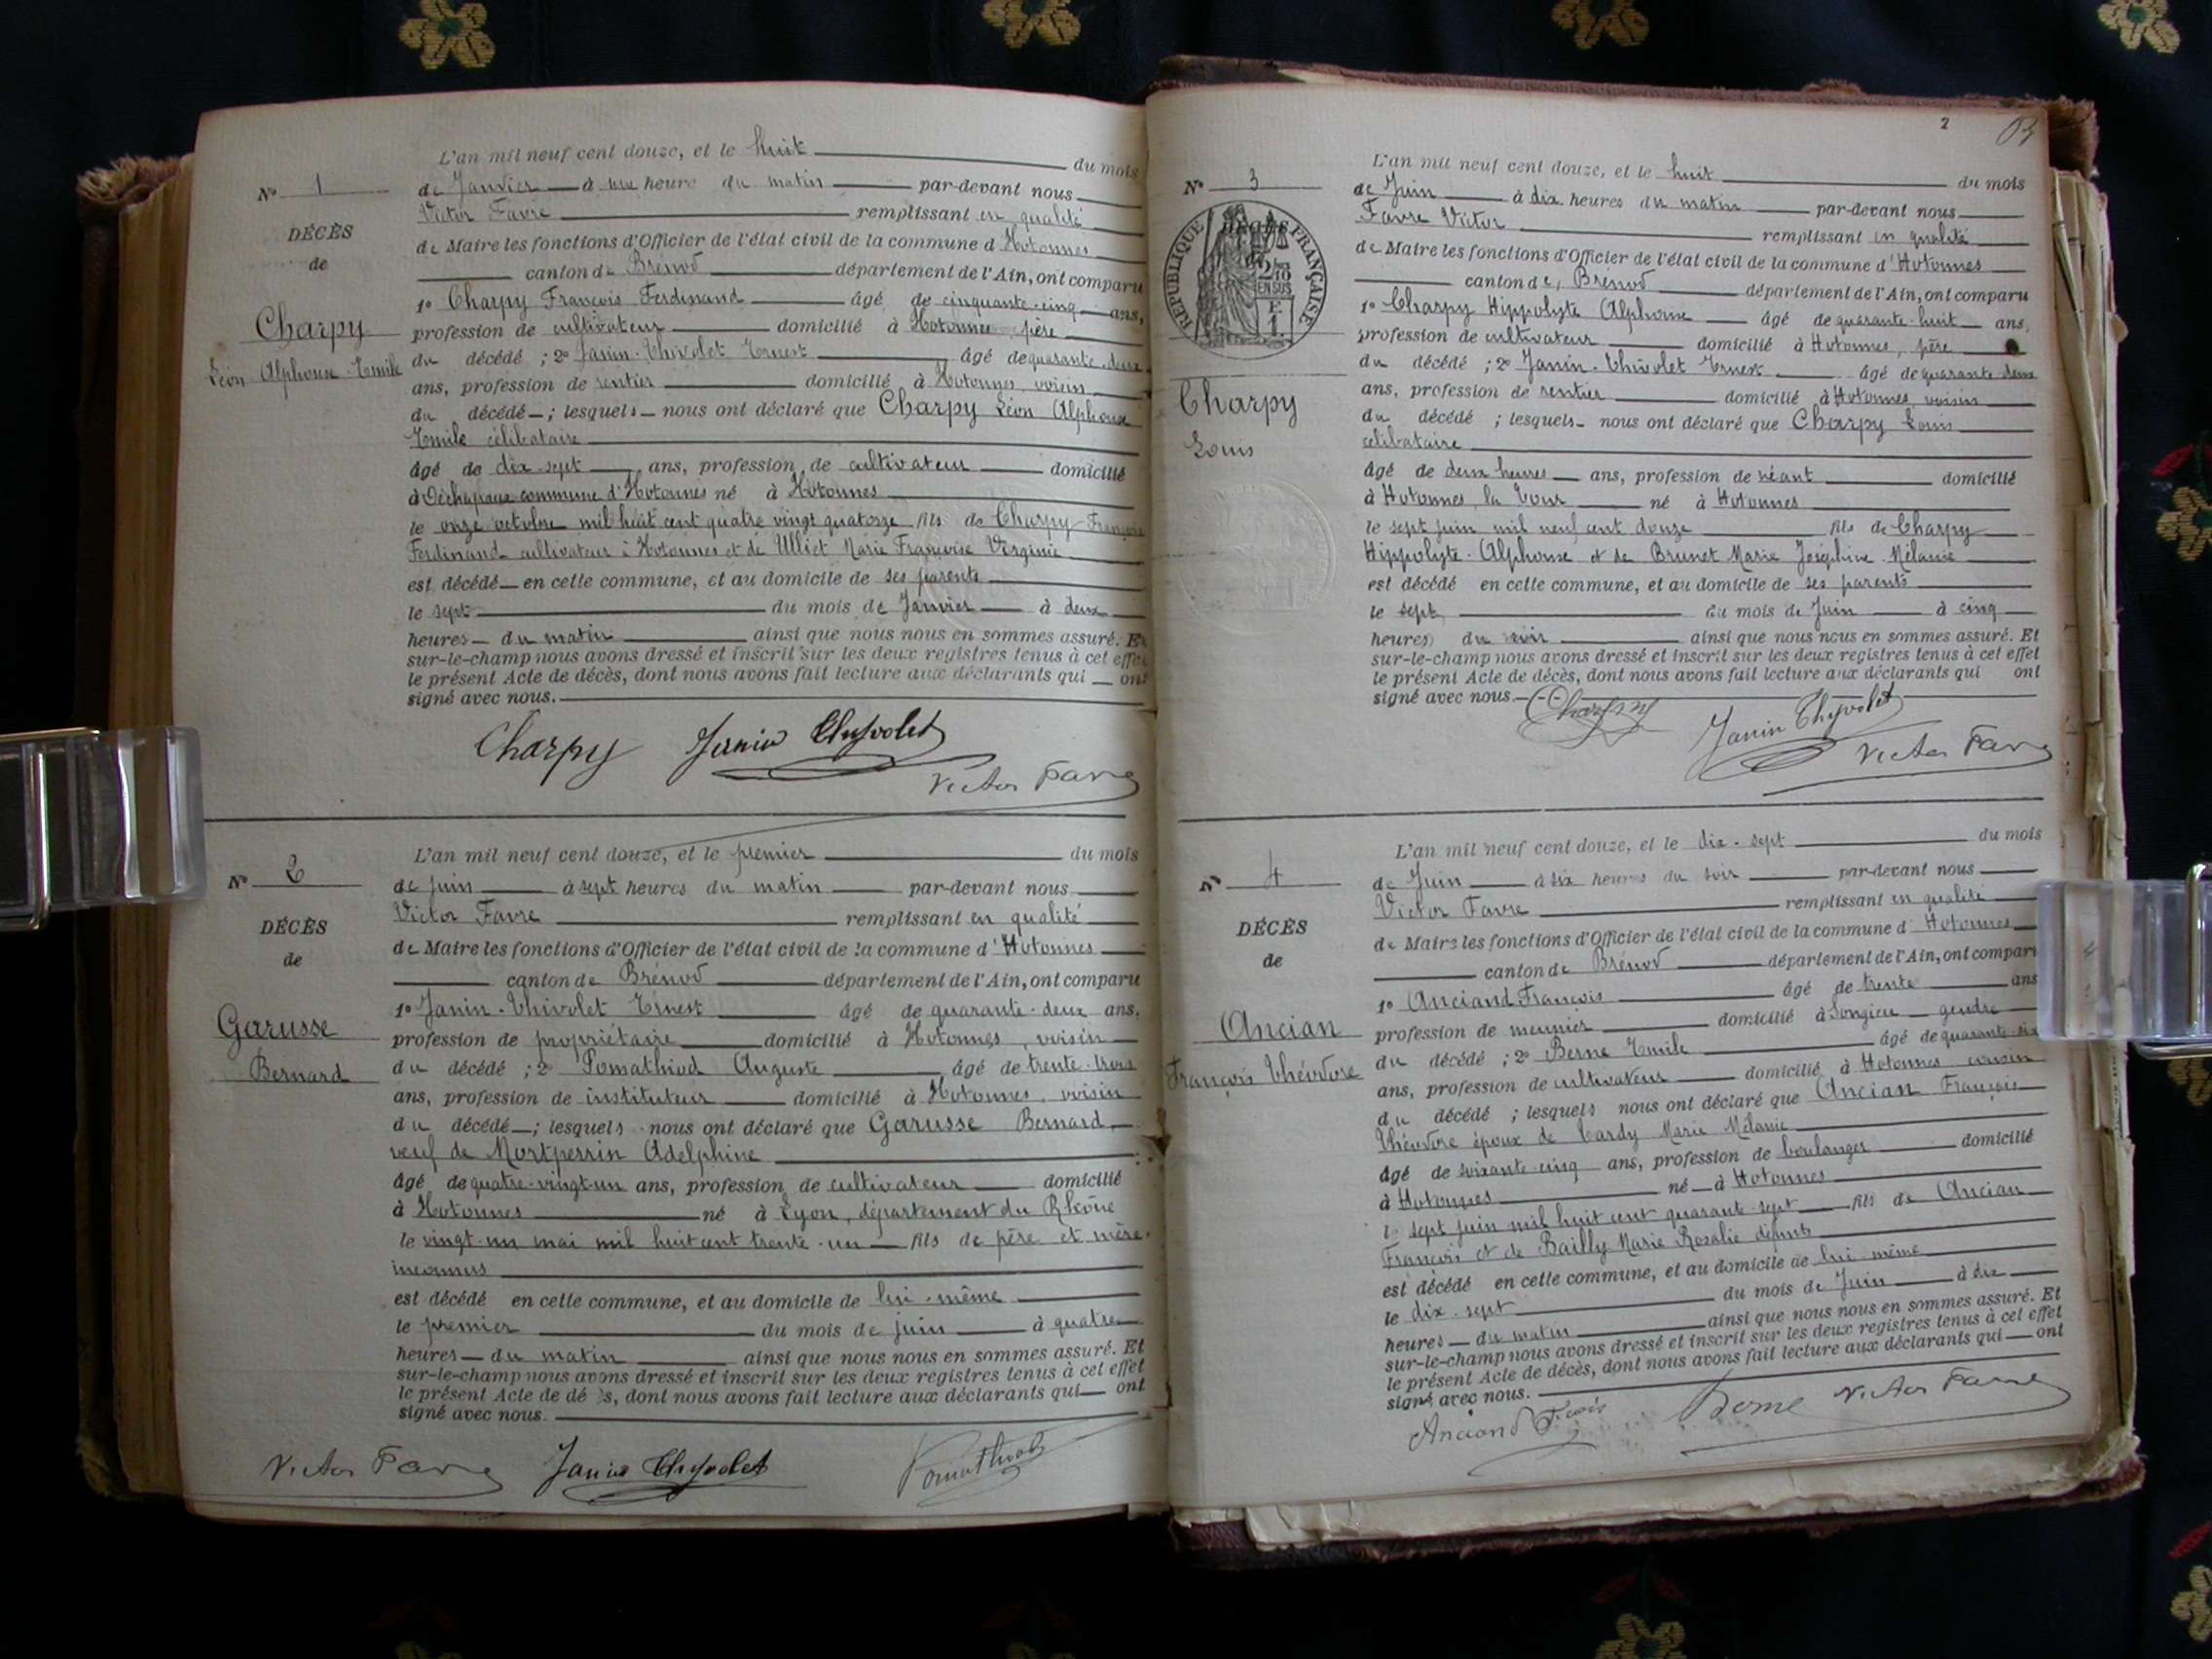 L'an mil neuf cent douze, et le huit du mois
N° 1
de Janvier à une heure du matin par-devant nous
Victor Favre remplissant en qualité
DÉCÈS
de Maire les fonctions d'Officier de l'état civil de la commune d Hotonnes
de
canton de Brénod département de l'Ain, ont comparu
1° Charpy François Ferdinand âgé de cinquante-cinq ans,
Charpy
profession de cultivateur domicilié à Hotonnes père
Léon Alphonse Emile
du décédé ; 2° Janin-Thivolet Ernest âgé de quarante-deux
ans, profession de rentier domicilié à Hotonnes, voisin
du décédé ; lesquels nous ont déclaré que Charpy Léon Alphonse
Emile célibataire
âgé de dix-sept ans, profession de cultivateur domicilié
à commune d'Hotonnes né à Hotonnes
le onze octobre mil huit cent quatre vingt quatorze fils de Charpy François
Ferdinand cultivateur à Hotonnes et de Ulliet Marie Françoise Virginie
est décédé en cette commune, et au domicile de ses parents
le sept du mois de Janvier à deux
heures du matin ainsi que nous nous en sommes assuré. Et
sur-le-champ nous avons dressé et inscrit sur les deux registres tenus à cet effet
le présent Acte de décès, dont nous avons fait lecture aux déclarants qui ont
signé avec nous.
Charpy Janin Thyvolet
Victor Favre
L'an mil neuf cent douze, et le premier du mois
N° 2
de juin à sept heures du matin par-devant nous
Victor Favre remplissant en qualité
DÉCÈS
de Maire les fonctions d'Officier de l'état civil de la commune d'Hotonnes
de
canton de Brénod département de l'Ain, ont comparu
1° Janin-Thivolet Ernest âgé de quarante-deux ans,
Garusse
profession de propriétaire domicilié à Hotonnes, voisin
Bernard
du décédé ; 2° Pomathiod Auguste âgé de trente-trois
ans, profession de instituteur domicilié à Hotonnes, voisin
du décédé ; lesquels nous ont déclaré que Garusse Bernard,
veuf de Montperrin Adelphine
âgé de quatre-vingt-un ans, profession de cultivateur domicilié
à Hotonnes né à Lyon, département du Rhône
le vingt-un mai mil huit cent trente-un fils de père et mère
inconnus
est décédé en cette commune, et au domicile de lui-même
le premier du mois de juin à quatre
heures du matin ainsi que nous nous en sommes assuré. Et
sur-le-champ nous avons dressé et inscrit sur les deux registres tenus à cet effet
le présent Acte de dé s, dont nous avons fait lecture aux déclarants qui ont
signé avec nous.
Victor Favre Janin Thyvolet Pomathiod
2
L'an mil neuf cent douze, et le huit du mois
N° 3
de Juin à dix heures du matin par-devant nous
Favre Victor remplissant en qualité
RÉPUBLIQUE FRANÇAISE
de Maire les fonctions d'Officier de l'état civil de la commune d'Hotonnes
canton de, Brénod département de l'Ain, ont comparu
1° Charpy Hippolyte Alphonse âgé de quarante-huit ans,
profession de cultivateur domicilié à Hotonnes, père
du décédé ; 2° Janin-Thivolet Ernest âgé de quarante-deux
ans, profession de rentier domicilié à Hotonnes, voisin
Charpy
du décédé ; lesquels nous ont déclaré que Charpy Louis
Louis
célibataire
âgé de deux heures ans, profession de néant domicilié
à Hotonnes, la Cour né à Hotonnes
le sept juin mil neuf cent douze fils de Charpy
Hippolyte-Alphonse et de Brunet Marie Joséphine-Mélanie
est décédé en cette commune, et au domicile de ses parents
le sept du mois de Juin à cinq
heures du soir ainsi que nous nous en sommes assuré. Et
sur-le-champ nous avons dressé et inscrit sur les deux registres tenus à cet effet
le présent Acte de décès, dont nous avons fait lecture aux déclarants qui ont
signé avec nous.
Charpy Janin Thyvolet
Victor Favre
L'an mil neuf cent douze, et le dix-sept du mois
N° 4
de Juin à six heures du soir par-devant nous
Victor Favre remplissant en qualité
DÉCÈS
de Maire les fonctions d'Officier de l'état civil de la commune d'Hotonnes
de
canton de Brénod département de l'Ain, ont comparu
1° Anciand François âgé de trente ans
Ancian
profession de meunier domicilié à Songieu gendre
François Théodore
du décédé ; 2° Berne Emile âgé de quarante-six
ans, profession de cultivateur domicilié à Hotonnes cousin
du décédé ; lesquels nous ont déclaré que Ancian François
Théodore époux de Tardy Marie Mélanie
âgé de soixante-cinq ans, profession de boulanger domicilié
à Hotonnes né à Hotonnes
le sept juin mil huit cent quarante-sept fils de Ancian
François et de Bailly Marie Rosalie défunts
est décédé en cette commune, et au domicile de lui-même
le dix-sept du mois de Juin à dix
heures du matin ainsi que nous nous en sommes assuré. Et
sur-le-champ nous avons dressé et inscrit sur les deux registres tenus à cet effet
le présent Acte de décès, dont nous avons fait lecture aux déclarants qui ont
signé avec nous.
Anciand Fcois Berne Victor Favre